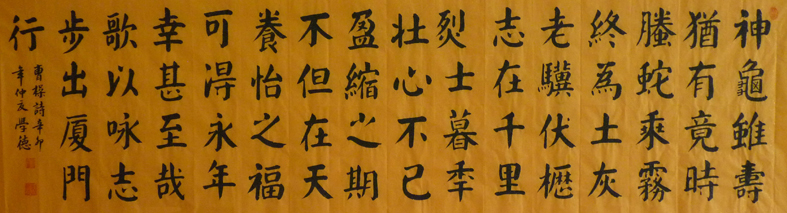 神龜雖壽
猶有竟時
螣蛇乘霧
終為土灰
老驥伏櫪
志在千里
烈士暮秊
壯心不已
盈縮之期
不但在天
養怡之福
可得永年
幸甚至哉
歌以咏志
步出厦門
行
曹操詩辛卯
學德